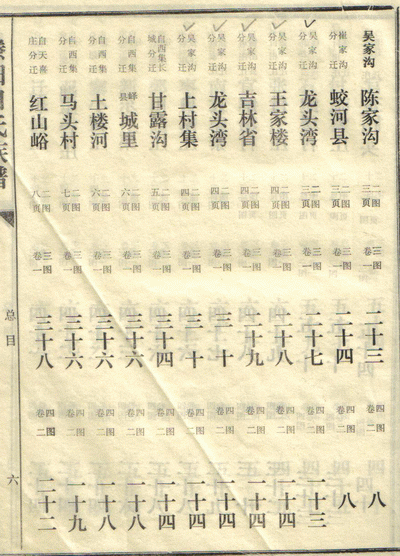 吴家沟 陈家沟 二图三页 三图卷一 二十三 四图卷二 八
崔家沟分迁 蛟河县 二图三页 三图卷一 二十四 四图卷二 八
吴家沟分迁 龙头湾 二图三页 三图卷一 二十七 四图卷二 十三
吴家沟分迁 王家楼 二图四页 三图卷一 二十八 四图卷二 十四
吴家沟分迁 吉林省 二图四页 三图卷一 二十九 四图卷二 十四
吴家沟分迁 龙头湾 二图四页 三图卷一 三十 四图卷二 十四
吴家沟分迁 上村集 二图四页 三图卷一 三十 四图卷二 十四
自西集长城分迁 甘露沟 二图五页 三图卷一 三十四 四图卷二 十四
自西集分迁 峄县城里 二图六页 三图卷一 三十六 四图卷二 十八
自西集分迁 土楼河 二图六页 三图卷一 三十六 四图卷二 十八
自西集分迁 马头村 二图七页 三图卷一 三十六 四图卷二 十九
自天喜庄分迁 红山峪 二图八页 三图卷一 三十八 四图卷二 二十二
氏族谱 总目 六